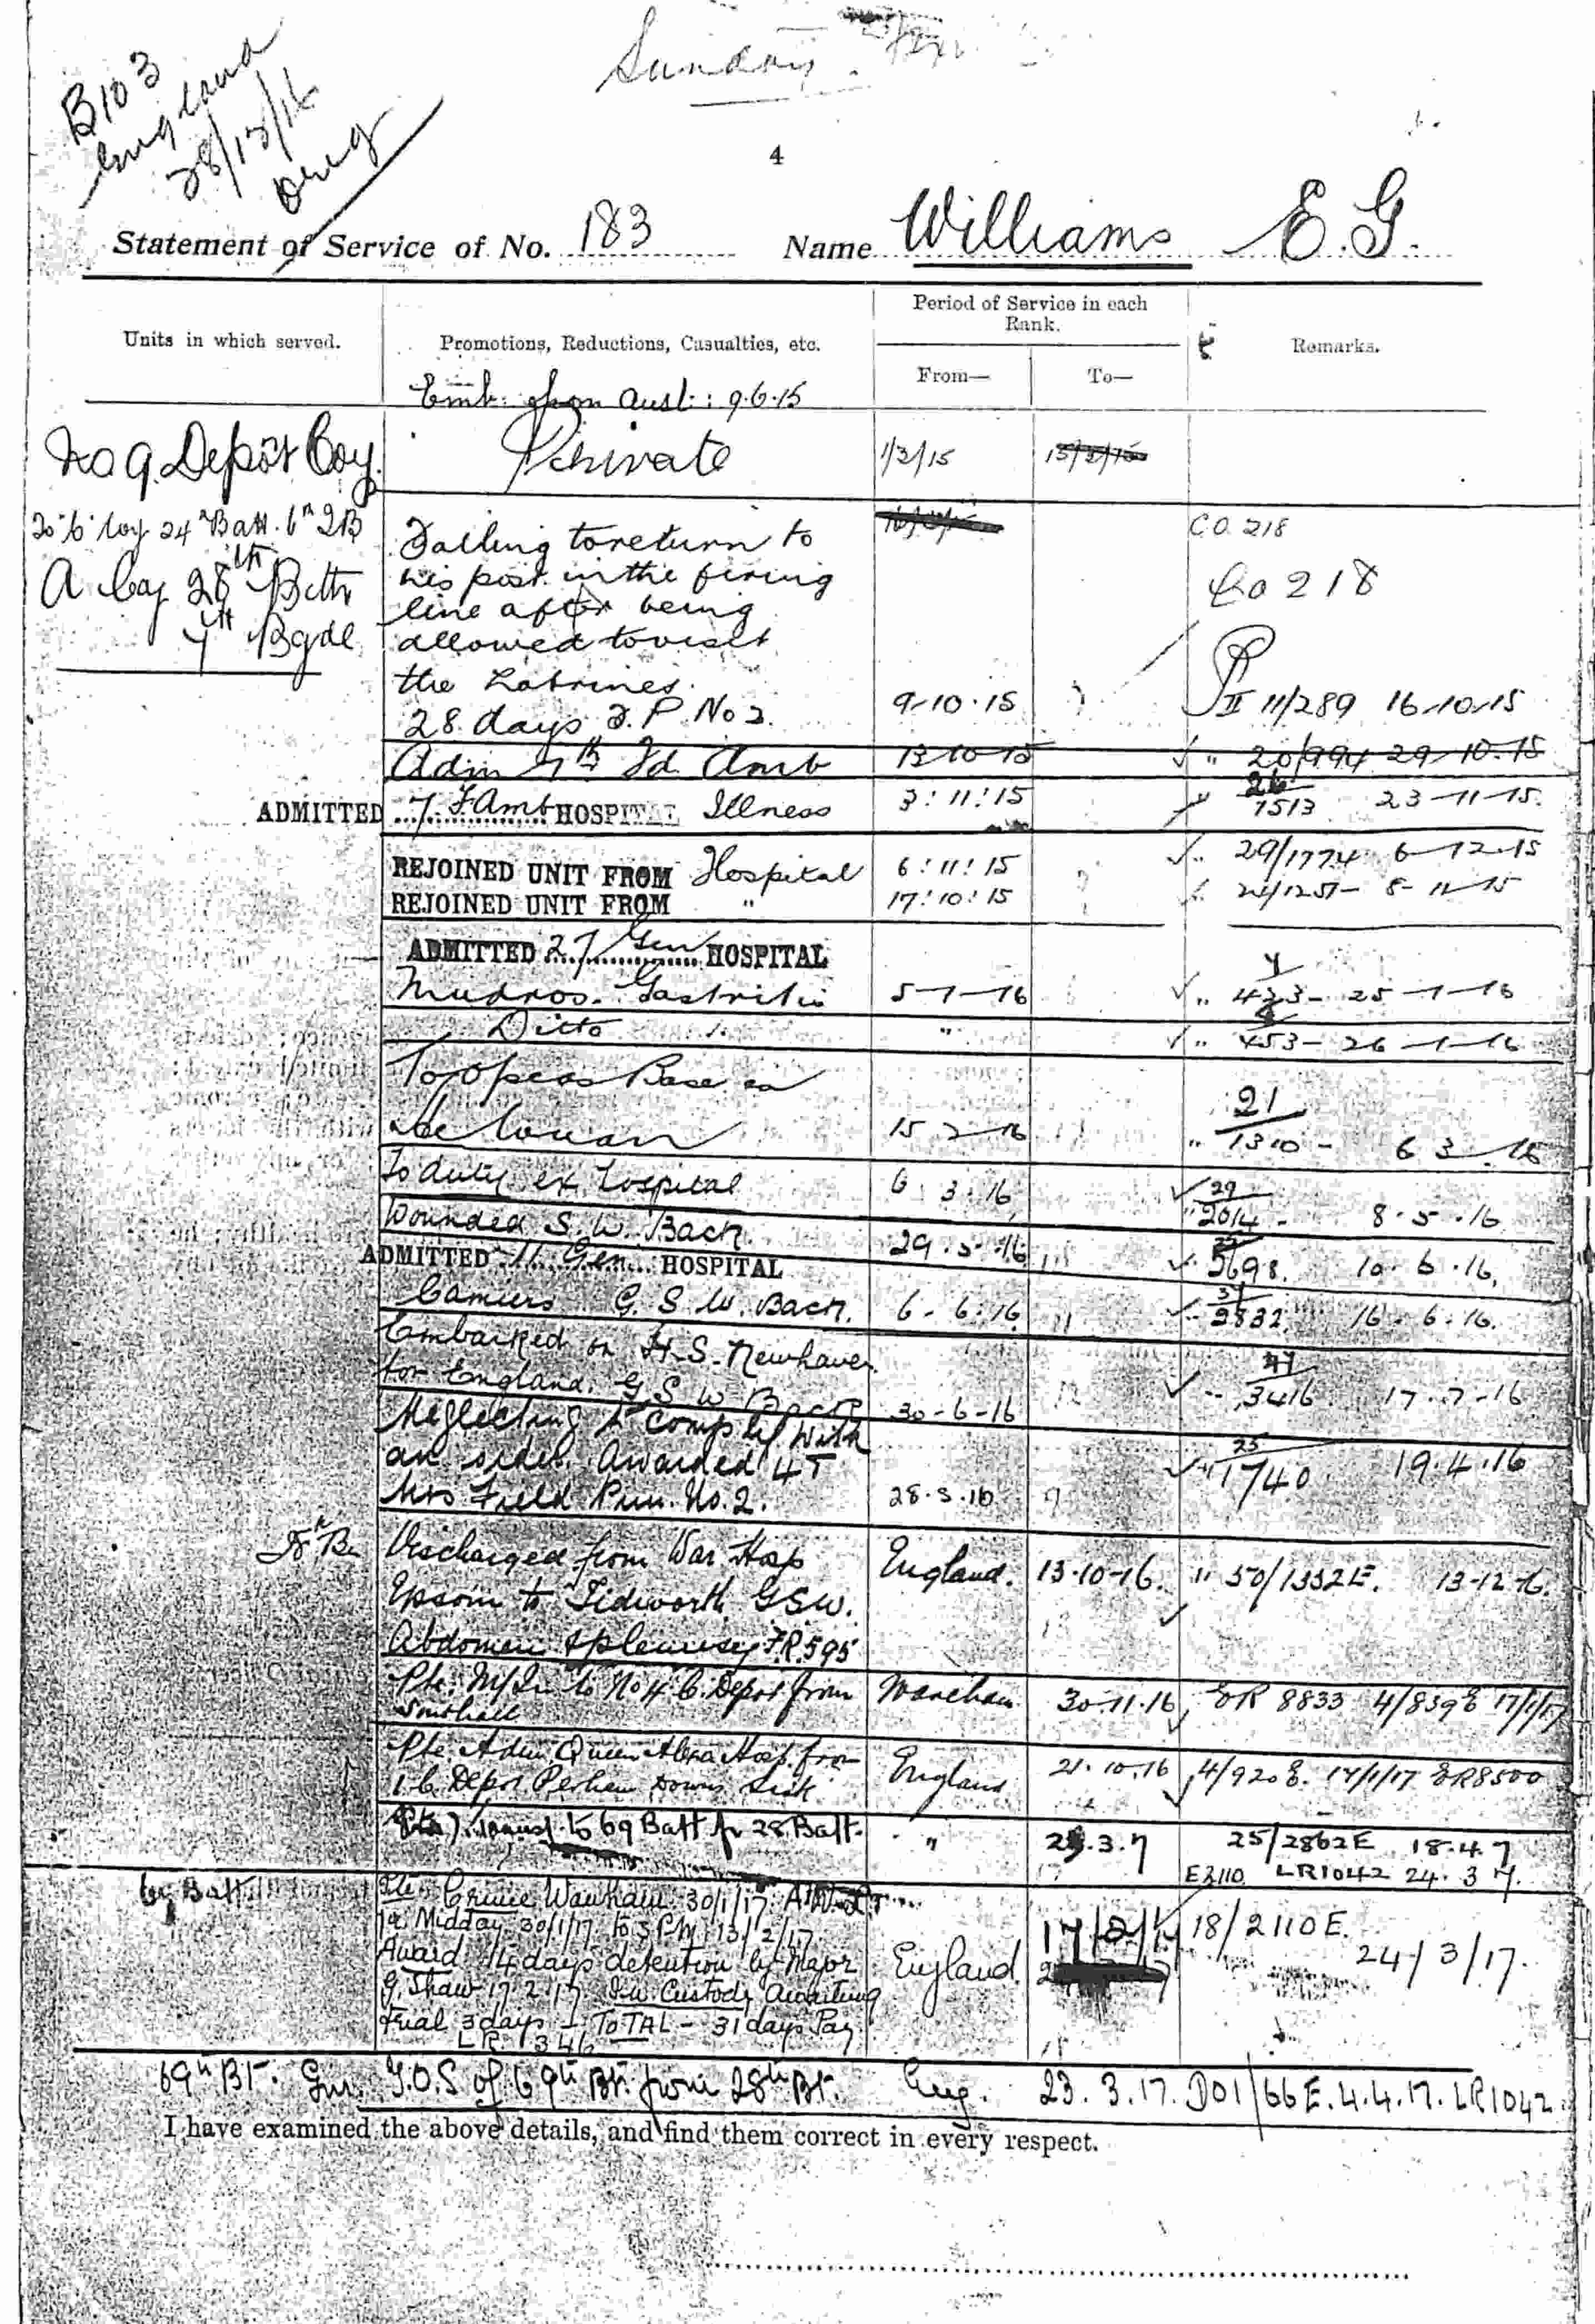 Sunday
B103
England
28/12/16
4
Statement of Service of No. 183 Name Williams E. G.
Units in which served.
Promotions, Reductions, Casualties, etc.
Period of Service in each Rank.
From—
To—
Remarks.
Emb. from Aust: 9.6.15
No 9 Depôt Coy. Private 1/3/15
24th Batt. 6th IB
A Coy 28th Bttn
7th Bgde
Failing to return to CO. 218
his post in the firing Co 218
line after being
allowed to visit
the Latrines.
28 days F.P. No 2. 9.10.15 II 11/289 16.10.15
Adm 7th Fd. Amb 13 10 15 " 20/994 29.10.15
ADMITTED 7 F Amb HOSPITAL Illness 3:11:15 " 26/1513 23-11-15.
REJOINED UNIT FROM Hospital 6:11:15 " 29/1774 6-12-15
REJOINED UNIT FROM " 17:10:15 8-11-15
ADMITTED 27 Gen HOSPITAL
Mudros. Gastritis 5-1-16 " 4/423- 25-1-16
Ditto " " 453- 26-1-16
Base
15 2 16 " 21/1310 - 6 3 16
To duty ex hospital 6.3.16 " 29/2014 - 8.5.16
Wounded S. W. Back. 29.5.16 2698. 10.6.16.
ADMITTED 11 Gen HOSPITAL
Camiers G. S. W. Back. 6.6.16 16.6.16.
Embarked on H.S. Newhaven
for England. G S W Back 30-6-16 3416 17.7.16
Neglecting to comply with
an order. Awarded 47 25/1740 19.4.16
hrs Field Pun. No. 2. 28.3.16
Discharged from War Hosp England. 13.10-16. " 50/1352E. 13-12-6.
Epsom to Tidworth GSW.
Abdomen & pleurisy F.R.595
Pte. M/In to No 4 C. Depot from Wareham 30.11.16 ER 8833 4/839E 17/1/17
Pte. Adm Queen Alexa Hosp. from England 21.10.16 4/920E. 17/1/17 ER8500
1.C. Depot Perham Downs Sick
(Pte) Transf. to 69 Batt fr 28 Batt. " 23.3.7 25/2862E 18.4.7
E2110 LR1042 24.3.7.
69 Batt
Pte Crime Wareham 30/1/17. A.W.L. fr
Midday 30/1/17 to 5 PM 13/2/17
Award 14 days detention by Major England 17/2/17 18/2110E. 24/3/17.
G. Shaw 17.2.17 In Custody Awaiting
trial 3 days - TOTAL - 31 days Pay
69th Bt. T.O.S of 69th Bt. from 28th Bt. Eng. 23.3.17. DO1/66E.4.4.17. LR1042
I have examined the above details, and find them correct in every respect.